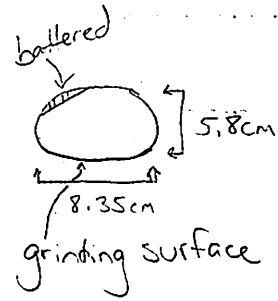 battered
5.8cm
8.35cm
grinding surface